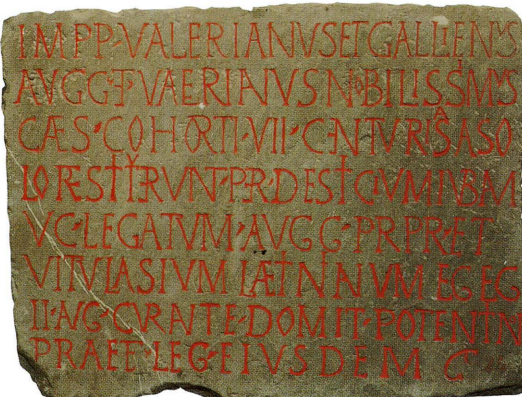 IMPP·VALERIANVSETGALLIENVS
AVGG·ET·VALERIANVSNOBILISSIMVS
CAES·COHORTI·VII·CENTVRIASASO
LORESTITVERVNT·PER·DESTICIVMIVBAM
VC·LEGATVM·AVGG·PRPR·ET
VITVLASIVM LAETINIANVM LEG LEG
II·AVG·CVRANTE·DOMIT·POTENTINO
PRAEF·LEG·EIVSDEM